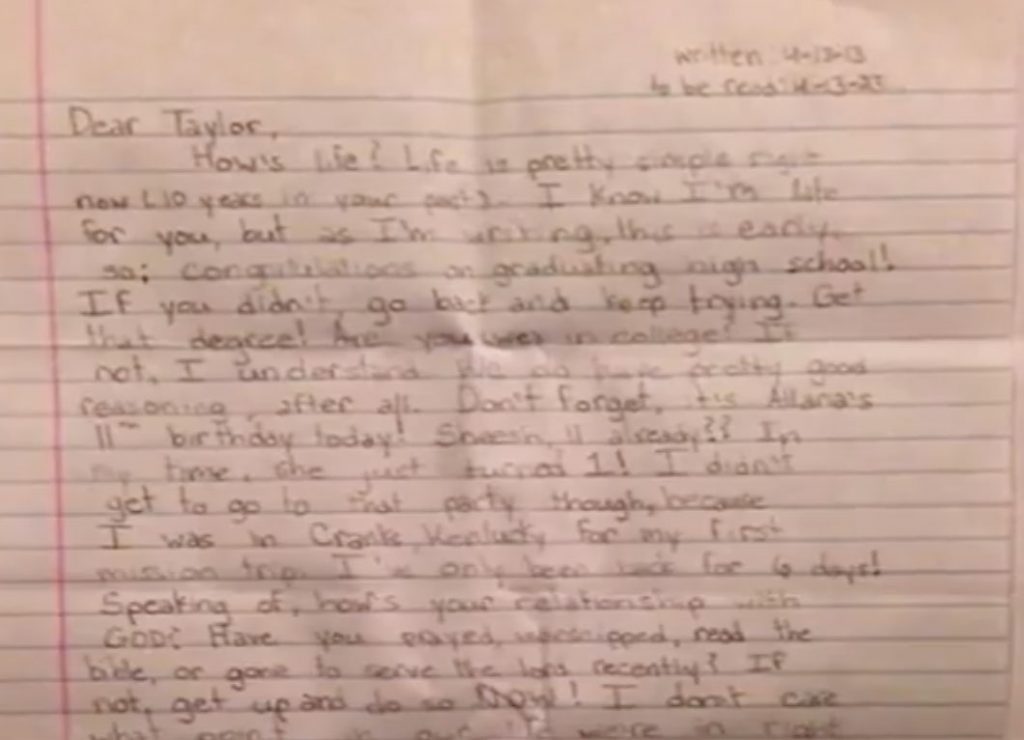 written: 4-13-13
to be read: 4-13-23
Dear Taylor,
How's life? Life is pretty simple right
now (10 years in your past). I know I'm late
for you, but as I'm writing, this is early,
so; congratulations on graduating high school!
If you didn't, go back and keep trying. Get
that degree! Are you in college? If
not, I understand. We do have pretty good
reasoning, after all. Don't forget, it's Allana's
11th birthday today! Sheesh, 11 already?? In
my time, she just turned 1! I didn't
get to go to that party though, because
I was in Cranks, Kentucky for my first
mission trip. I've only been back for 6 days!
Speaking of, how's your relationship with
GOD? Have you prayed, worshipped, read the
bible, or gone to serve the lord recently? If
not, get up and do so NOW! I don't care
what point in our life we're in right